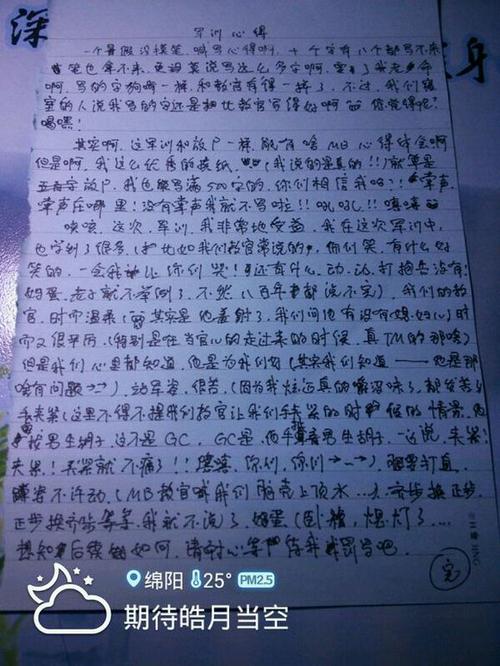 深
身
军训心得
一个暑假没摸笔,喊写心得啊,十个字有八个都写不来
笔也拿不来,更莫莫说写这么多字啊,要了我老命
啊,写的字狗 一样,和教官有得一拼了,不过,我们寝
室的人说我写的字还是把比教官写得好啊 你觉得呢?
嘿嘿!
其实啊,这军训和放尸一样,能有啥MB心得体会啊
但是啊,我这么优秀的孩纸,(我说的是真的!!)就算是
放尸,我也能写满500字的,你们相信我吗?!掌声,
掌声在哪里!没有掌声我就不写啦!!吼吼!!嘻嘻
咳咳,这次,军训,我非常地受益,我在这次军训中,
也学到了很多,(比如我们教官常说的,你们笑,有什么好
笑的,一会我让你们哭!还有什么,动,动,打报告没有!
妈蛋,老子就不举例了,不然,八百年都说不完),我们的教
官,时而温柔(其实是他羞射了,我们问他有没有媳妇儿)时
而又很平历(特别是在当官儿的走过来的时候,真TM的那啥)
但是我们心里都知道,他是为我们好(其实我们知道——他是那
啥有问题→→),站军姿,很苦,(因为我
手夹紧(这里不得不提我们教官让我们手夹紧的时候的情景,
找男生胡子,这不是GC,GC是,他 男生胡子,一边说,夹紧!
夹紧!夹紧就不痛了!! 你们,你们→_→),腰要打直,
不许动,(MB教官喊我们脑壳上顶水...),齐步换正步,
正步换齐步等等,我就不说了,妈蛋(卧槽,熄灯了...
想知后续如何,请耐心等待我被罚写吧.
完
绵阳 25° PM2.5
期待皓月当空